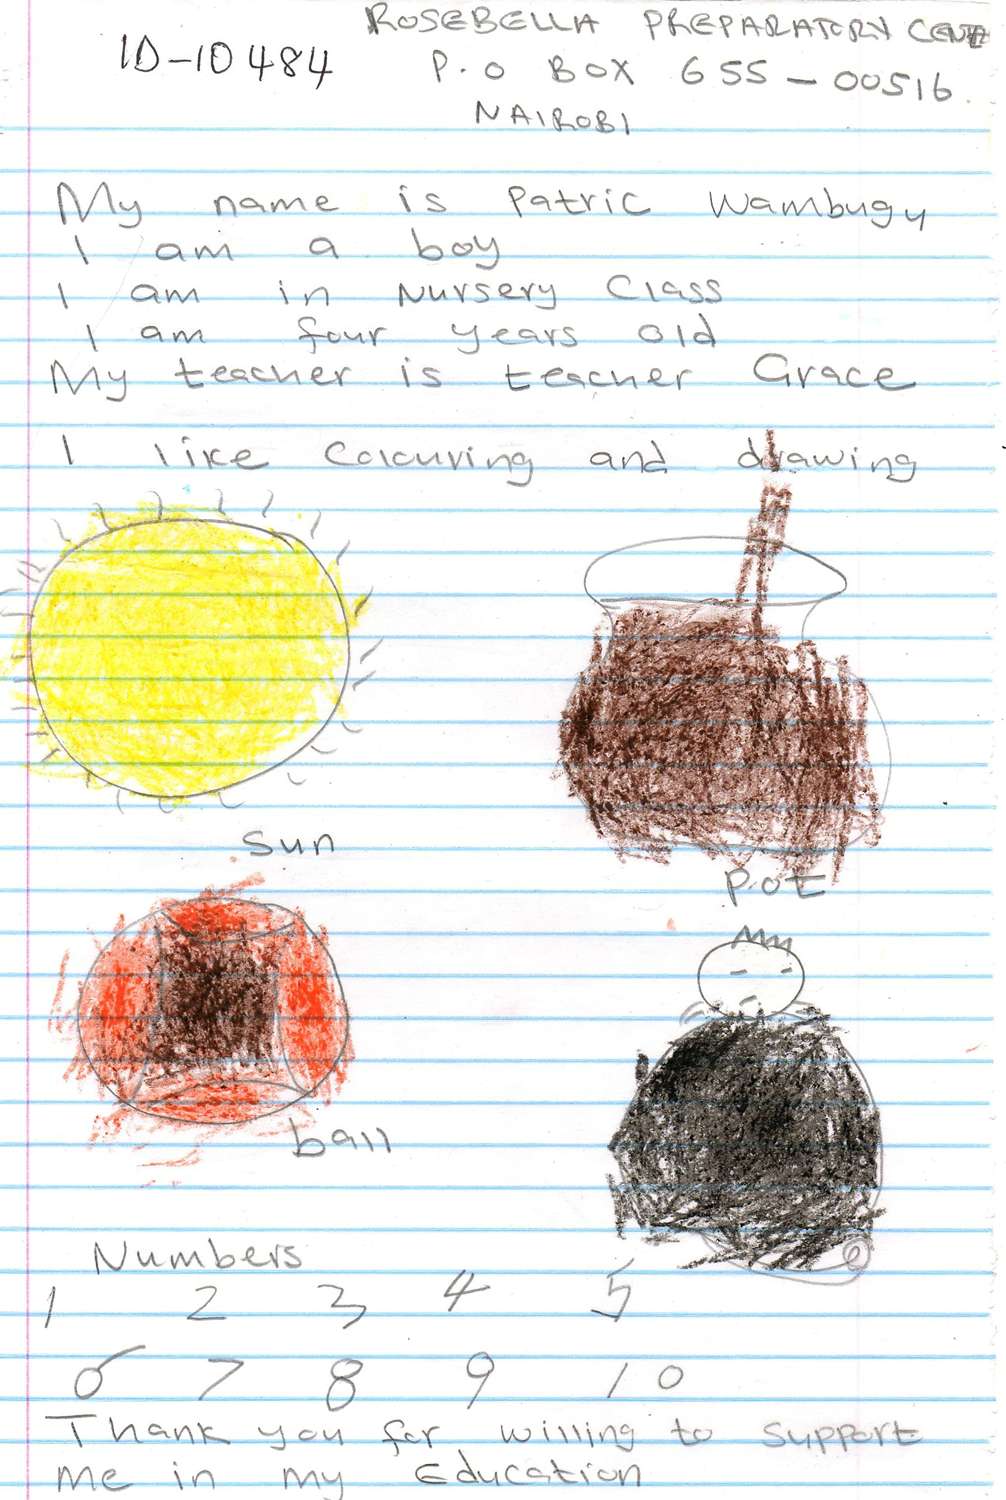 ROSEBELLA PREPARATORY
ID-10484
P.O BOX 655-00516
NAIROBI
My name is Patric Wambugu
I am a boy
I am in Nursery Class
I am four years old
My teacher is teacher Grace
I like Colouring and drawing
Sun
Pot
ball
Numbers
1 2 3 4 5
6 7 8 9 10
Thank you for willing to Support
me in my Education